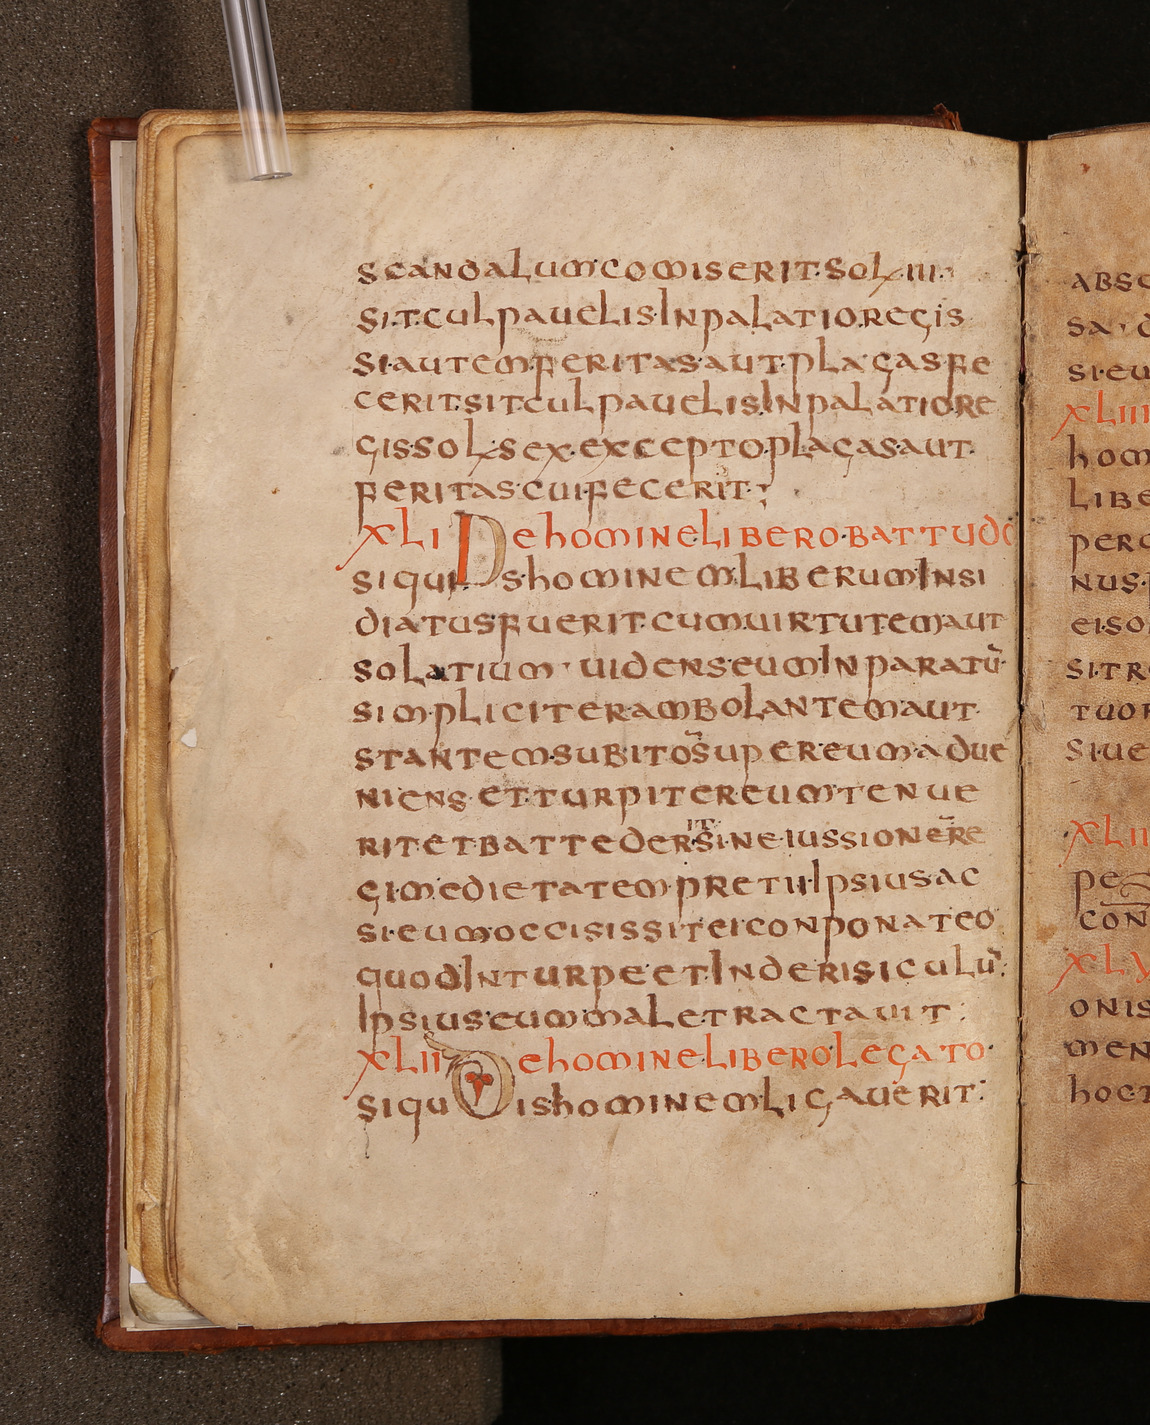 scandalum·comiserit·sol·iii·
si·t·culpauelis·Inpalatio·regis
si·autem·feritas·aut·plagas·fe
cerit·sit·culpauelis·Inpalatio·re
gis·sol·sex·excepto·plagas·aut·
feritas·cui·fecerit·;
XLI De homine·libero·battudo
siquis·hominem·liberum Insi
diatus·fuerit·cum·uirtutem aut
solatium · uidens·eum In paratū·
simpliciter ambolantem·aut·
stantem·subitos̄ super·eum·adue
niens·et turpiter eum tenue
rit et battederit sine·iussionē re
gi·medietatem·pretii·Ipsius·ac
si·eum occisissit·ei conponat eo
quod Inturpe et Inderisiculū·;
Ipsius·eum maletractauit :
XLII De homine·libero·legato·
siquis hominem·ligauerit :
ABSC
SA·
SI·EU
XLIII
hom
LIBE
PERC
NUS·
EISO
SIT·R
TUOR
SIUE
XLII
PE
CON
XLV
ONIS
MEN
hOCT